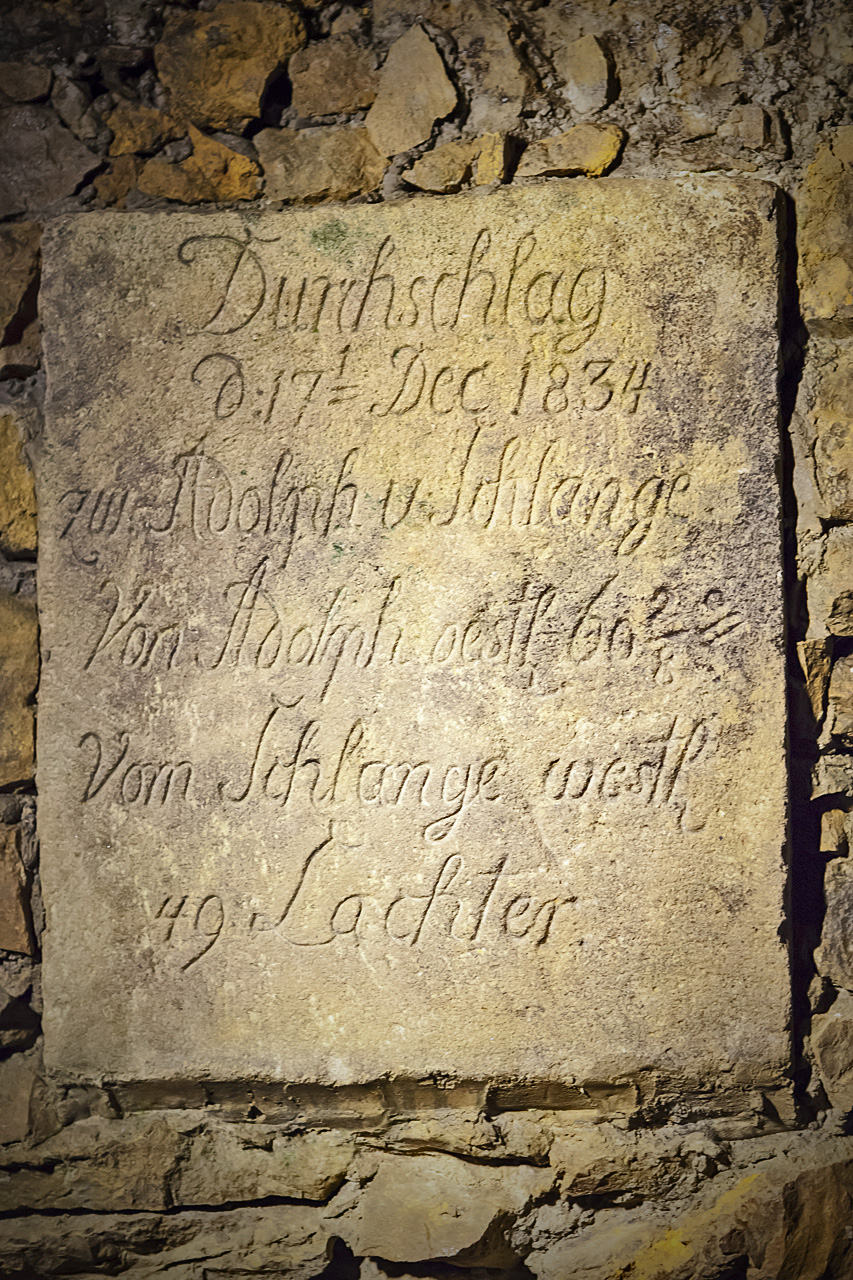 Durchschlag
d: 17t Dec 1834
zw. Adolph u Schlange
Von Adolph oestl: 60 2/8
Vom Schlange westl
49 Lachter